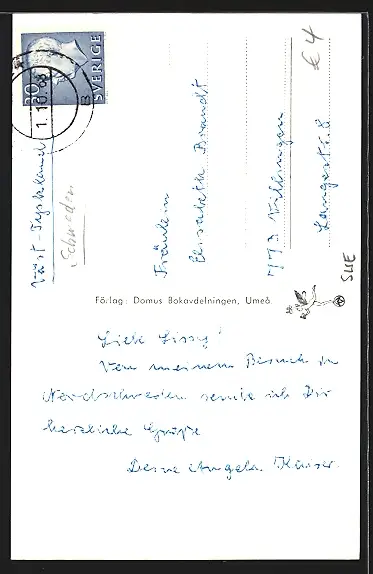 SVERIGE
30
1.10.68
Väst-Tyskland
Schweden
Fräulein
Elisabeth Brandt
773 Villingen
Langestr. 8
€ 4
SWE
Förlag: Domus Bokavdelningen, Umeå.
Liebe Lissy!
Von meinem Besuch in
Nordschweden sende ich Dir
herzliche Grüße
Deine Angela Kaiser.